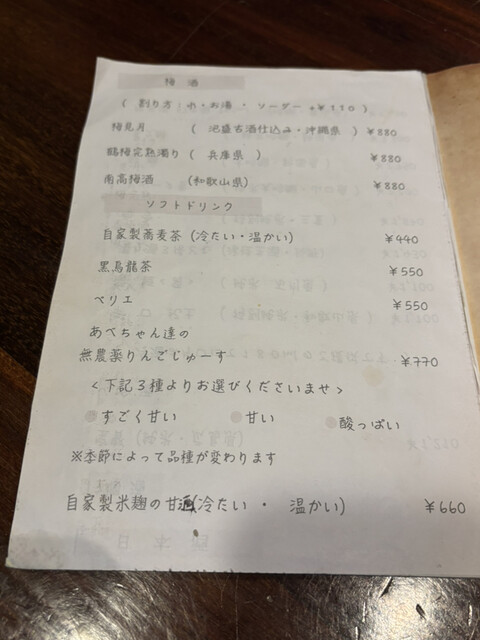 梅酒
( 割り方 水・お湯・ソーダー +¥110 )
梅見月 ( 泡盛古酒仕込み・沖縄県 ) ¥880
鶴梅完熟濁り ( 兵庫県 ) ¥880
南高梅酒 (和歌山県) ¥880
ソフトドリンク
自家製蕎麦茶 (冷たい・温かい) ¥440
黒烏龍茶 ¥550
ペリエ ¥550
あべちゃん達の
無農薬りんごじゅーす ¥770
<下記3種よりお選びくださいませ>
すごく甘い 甘い 酸っぱい
※季節によって品種が変わります
自家製米麹の甘酒(冷たい・ 温かい) ¥660